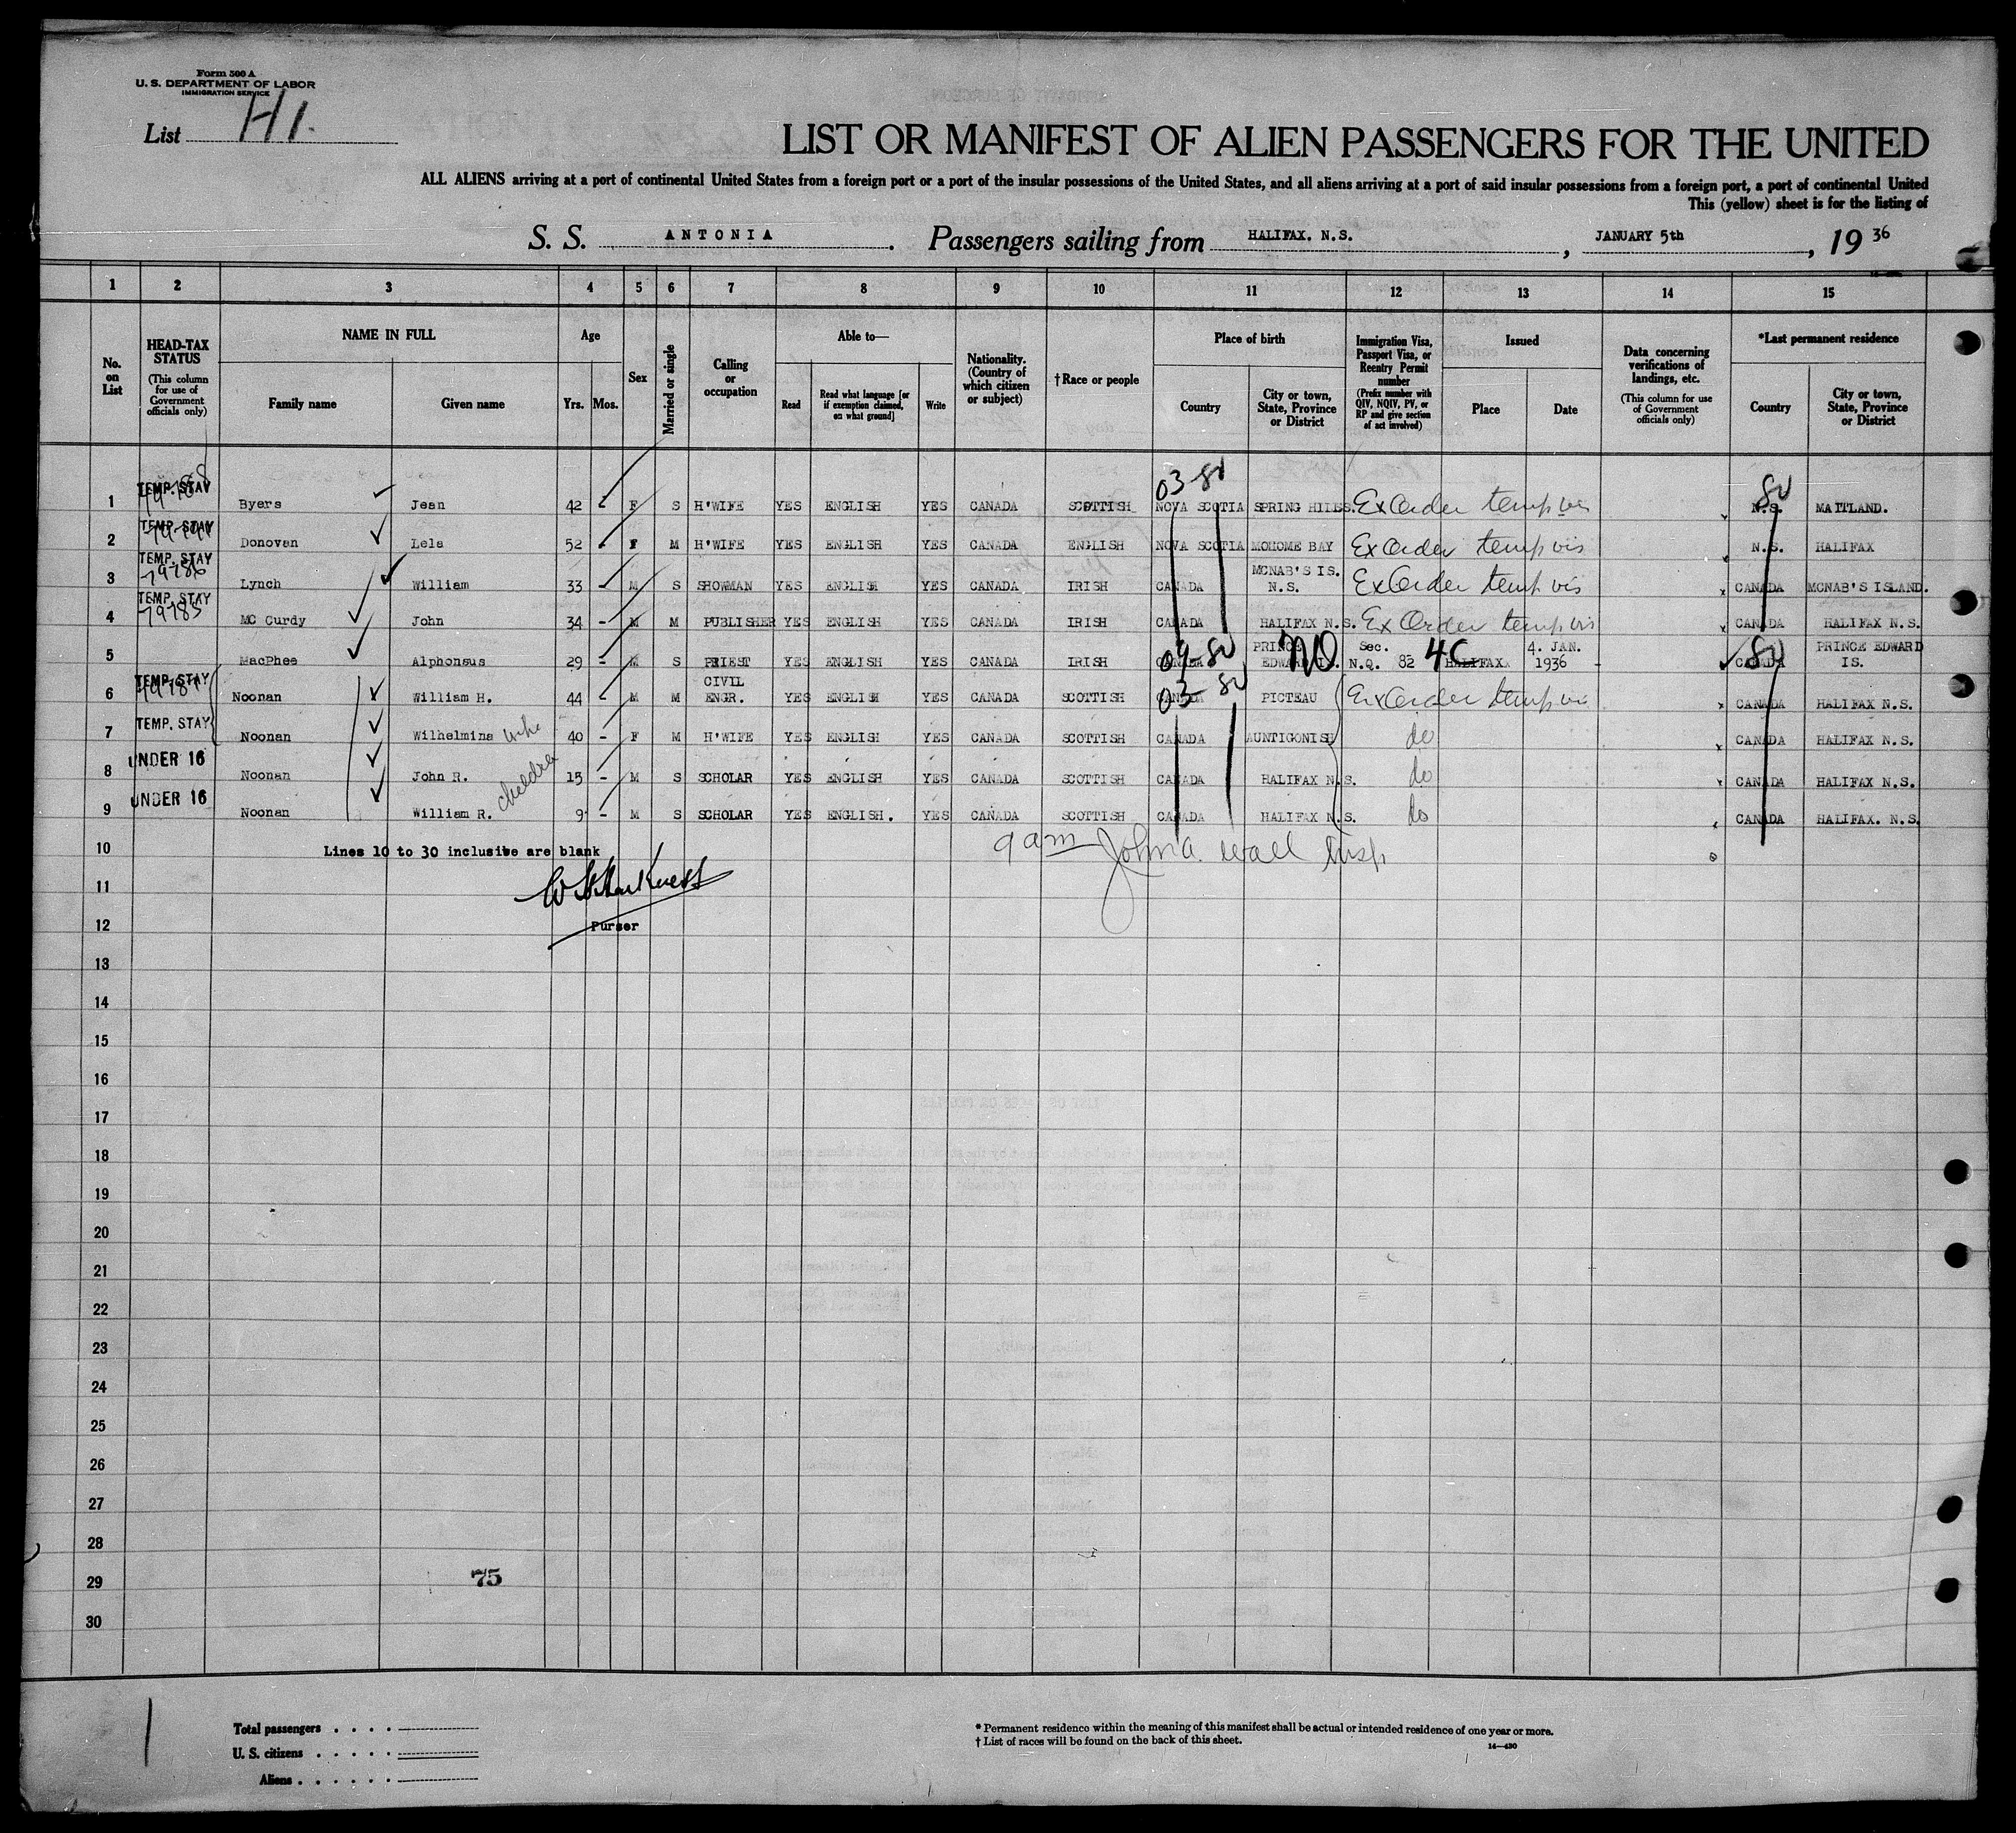 Form 500 A
U. S. DEPARTMENT OF LABOR
IMMIGRATION SERVICE
List H1.
LIST OR MANIFEST OF ALIEN PASSENGERS FOR THE UNITED
ALL ALIENS arriving at a port of continental United States from a foreign port or a port of the insular possessions of the United States, and all aliens arriving at a port of said insular possessions from a foreign port, a port of continental United
This (yellow) sheet is for the listing of
S. S. ANTONIA. Passengers sailing from HALIFAX. N.S., JANUARY 5th, 1936
1 2 3 4 5 6 7 8 9 10 11 12 13 14 15
No. on List
HEAD-TAX STATUS (This column for use of Government officials only)
NAME IN FULL
Family name Given name
Age
Yrs. Mos.
Sex
Married or single
Calling or occupation
Able to—
Read
Read what language [or if exemption claimed, on what ground]
Write
Nationality. (Country of which citizen or subject)
†Race or people
Place of birth
Country
City or town, State, Province or District
Immigration Visa, Passport Visa, or Reentry Permit number (Prefix number with QIV, NQIV, PV, or RP and give section of act involved)
Issued
Place Date
Data concerning verifications of landings, etc. (This column for use of Government officials only)
*Last permanent residence
Country
City or town, State, Province or District
03-80 80
1 TEMP. STAY Byers Jean 42 - F S H'WIFE YES ENGLISH YES CANADA SCOTTISH NOVA SCOTIA SPRING HILLS. Ex Order temp vis N.S. MAITLAND.
2 TEMP. STAY Donovan Lela 52 - F M H'WIFE YES ENGLISH YES CANADA ENGLISH NOVA SCOTIA MOHOME BAY Ex Order temp vis N.S. HALIFAX
3 TEMP. STAY 79786 Lynch William 33 - M S SHOWMAN YES ENGLISH YES CANADA IRISH CANADA MCNAB'S IS. N.S. Ex Order temp vis CANADA MCNAB'S ISLAND.
4 TEMP. STAY 79785 MC Curdy John 34 - M M PUBLISHER YES ENGLISH YES CANADA IRISH CANADA HALIFAX N.S. Ex Order temp vis CANADA HALIFAX N.S.
5 MacPhee Alphonsus 29 - M S PRIEST YES ENGLISH YES CANADA IRISH CANADA 04-80 PRINCE EDWARD IS. NO Sec. N.Q. 82 4C HALIFAX 4. JAN. 1936 80 CANADA PRINCE EDWARD IS.
6 TEMP. STAY Noonan William H. 44 - M M CIVIL ENGR. YES ENGLISH YES CANADA SCOTTISH CANADA 03-80 PICTEAU Ex Order temp vis CANADA HALIFAX N.S.
7 TEMP. STAY Noonan Wilhelmina wife 40 - F M H'WIFE YES ENGLISH YES CANADA SCOTTISH CANADA AUNTIGONISH do CANADA HALIFAX N.S.
8 UNDER 16 Noonan John R. children 15 - M S SCHOLAR YES ENGLISH YES CANADA SCOTTISH CANADA HALIFAX N.S. do CANADA HALIFAX N.S.
9 UNDER 16 Noonan William R. 9 - M S SCHOLAR YES ENGLISH. YES CANADA SCOTTISH CANADA HALIFAX N.S. do CANADA HALIFAX. N.S.
10 Lines 10 to 30 inclusive are blank 9 am John A. Wall Insp
11
12 Purser
13
14
15
16
17
18
19
20
21
22
23
24
25
26
27
28
29 75
30
Total passengers . . . .
U. S. citizens . . . . .
Aliens . . . . . .
* Permanent residence within the meaning of this manifest shall be actual or intended residence of one year or more.
† List of races will be found on the back of this sheet.
14—430